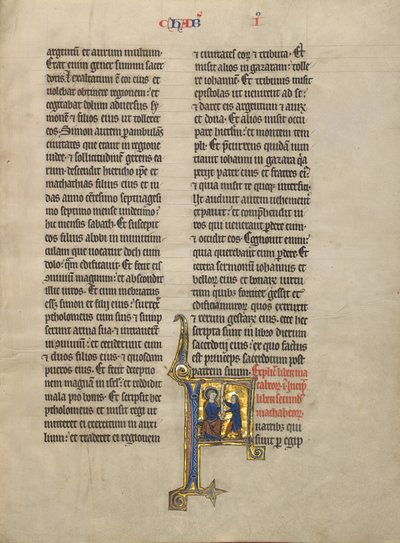 CHABEORUM I
argentum et aurum multum.
Erat enim gener summi sacer
dotis. Et exaltatum e cor eius et
volebat obtinere regionem: et
cogitabat dolum adversus sy
monem et filios eius ut tolleret
eos. Simon autem perambulans
civitates que erant in regione
iudee et sollicitudinem gerens ea
rum descendit hiericho ipse et
mathathias filius eius et iu
das anno centesimo septuagesi
mo septimo mense undecimo:
hic mensis sabath. Et suscepit
eos filius abobi in munitiun
culam que vocatur doch cum
dolo: quam edificavit. Et fecit eis
convivium magnum: et abscondit
illic viros. Et cum inebriatus
esset simon et filii eius: surrexit
ptholomeus cum suis et sump
serunt arma sua et intraverunt
in convivium: et occiderunt eum
et duos filios eius et quosdam
pueros eius. Et fecit deceptio
nem magnam in israel: et reddidit
mala pro bonis. Et scripsit hec
ptholomeus et misit regi ut
mitteret ei exercitum in auxi
lium: et traderet ei regionem
et civitates eorum et tributa. Et
misit alios in gazaram: tolle
re iohannem. Et tribunis misit
epistolas ut venirent ad se:
et daret eis argentum et aurum
et dona. Et alios misit occu
pare hierusalem: et montem tem
pli. Et precurrens quidam nun
tiavit iohanni in gazara quia
periit pater eius et fratres eius:
et quia misit te quoque interfici.
Ut audivit autem vehementer
expavit: et comprehendit vi
ros qui venerant perdere eum:
et occidit eos. Cognovit enim:
quia querebant eum perdere. Et
cetera sermonum iohannis et
bellorum eius et bonarum virtu
tum quibus fortiter gessit et
edificii murorum quos extruxit
et rerum gestarum eius. ecce hec
scripta sunt in libro dierum
sacerdotii eius: ex quo factus
est princeps sacerdotum post
patrem suum. Explicit liber I ma
chabeorum. Incipit
liber secundus
machabeorum.
Fratribus qui
sunt per egip